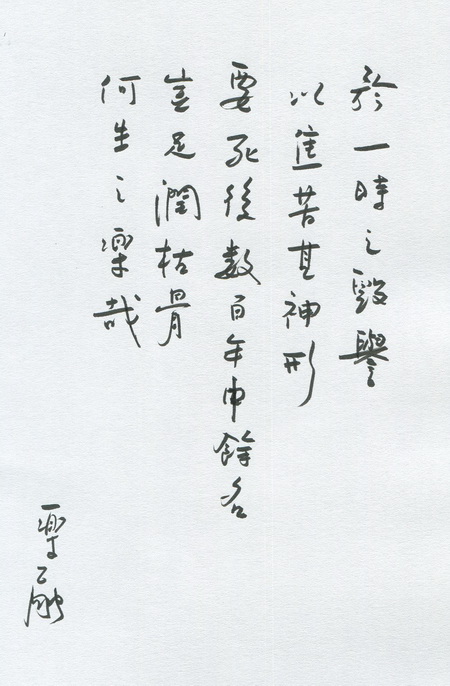 矜一時之毀譽
以焦苦其神形
要死後数百年中餘名
豈足潤枯骨
何生之樂哉